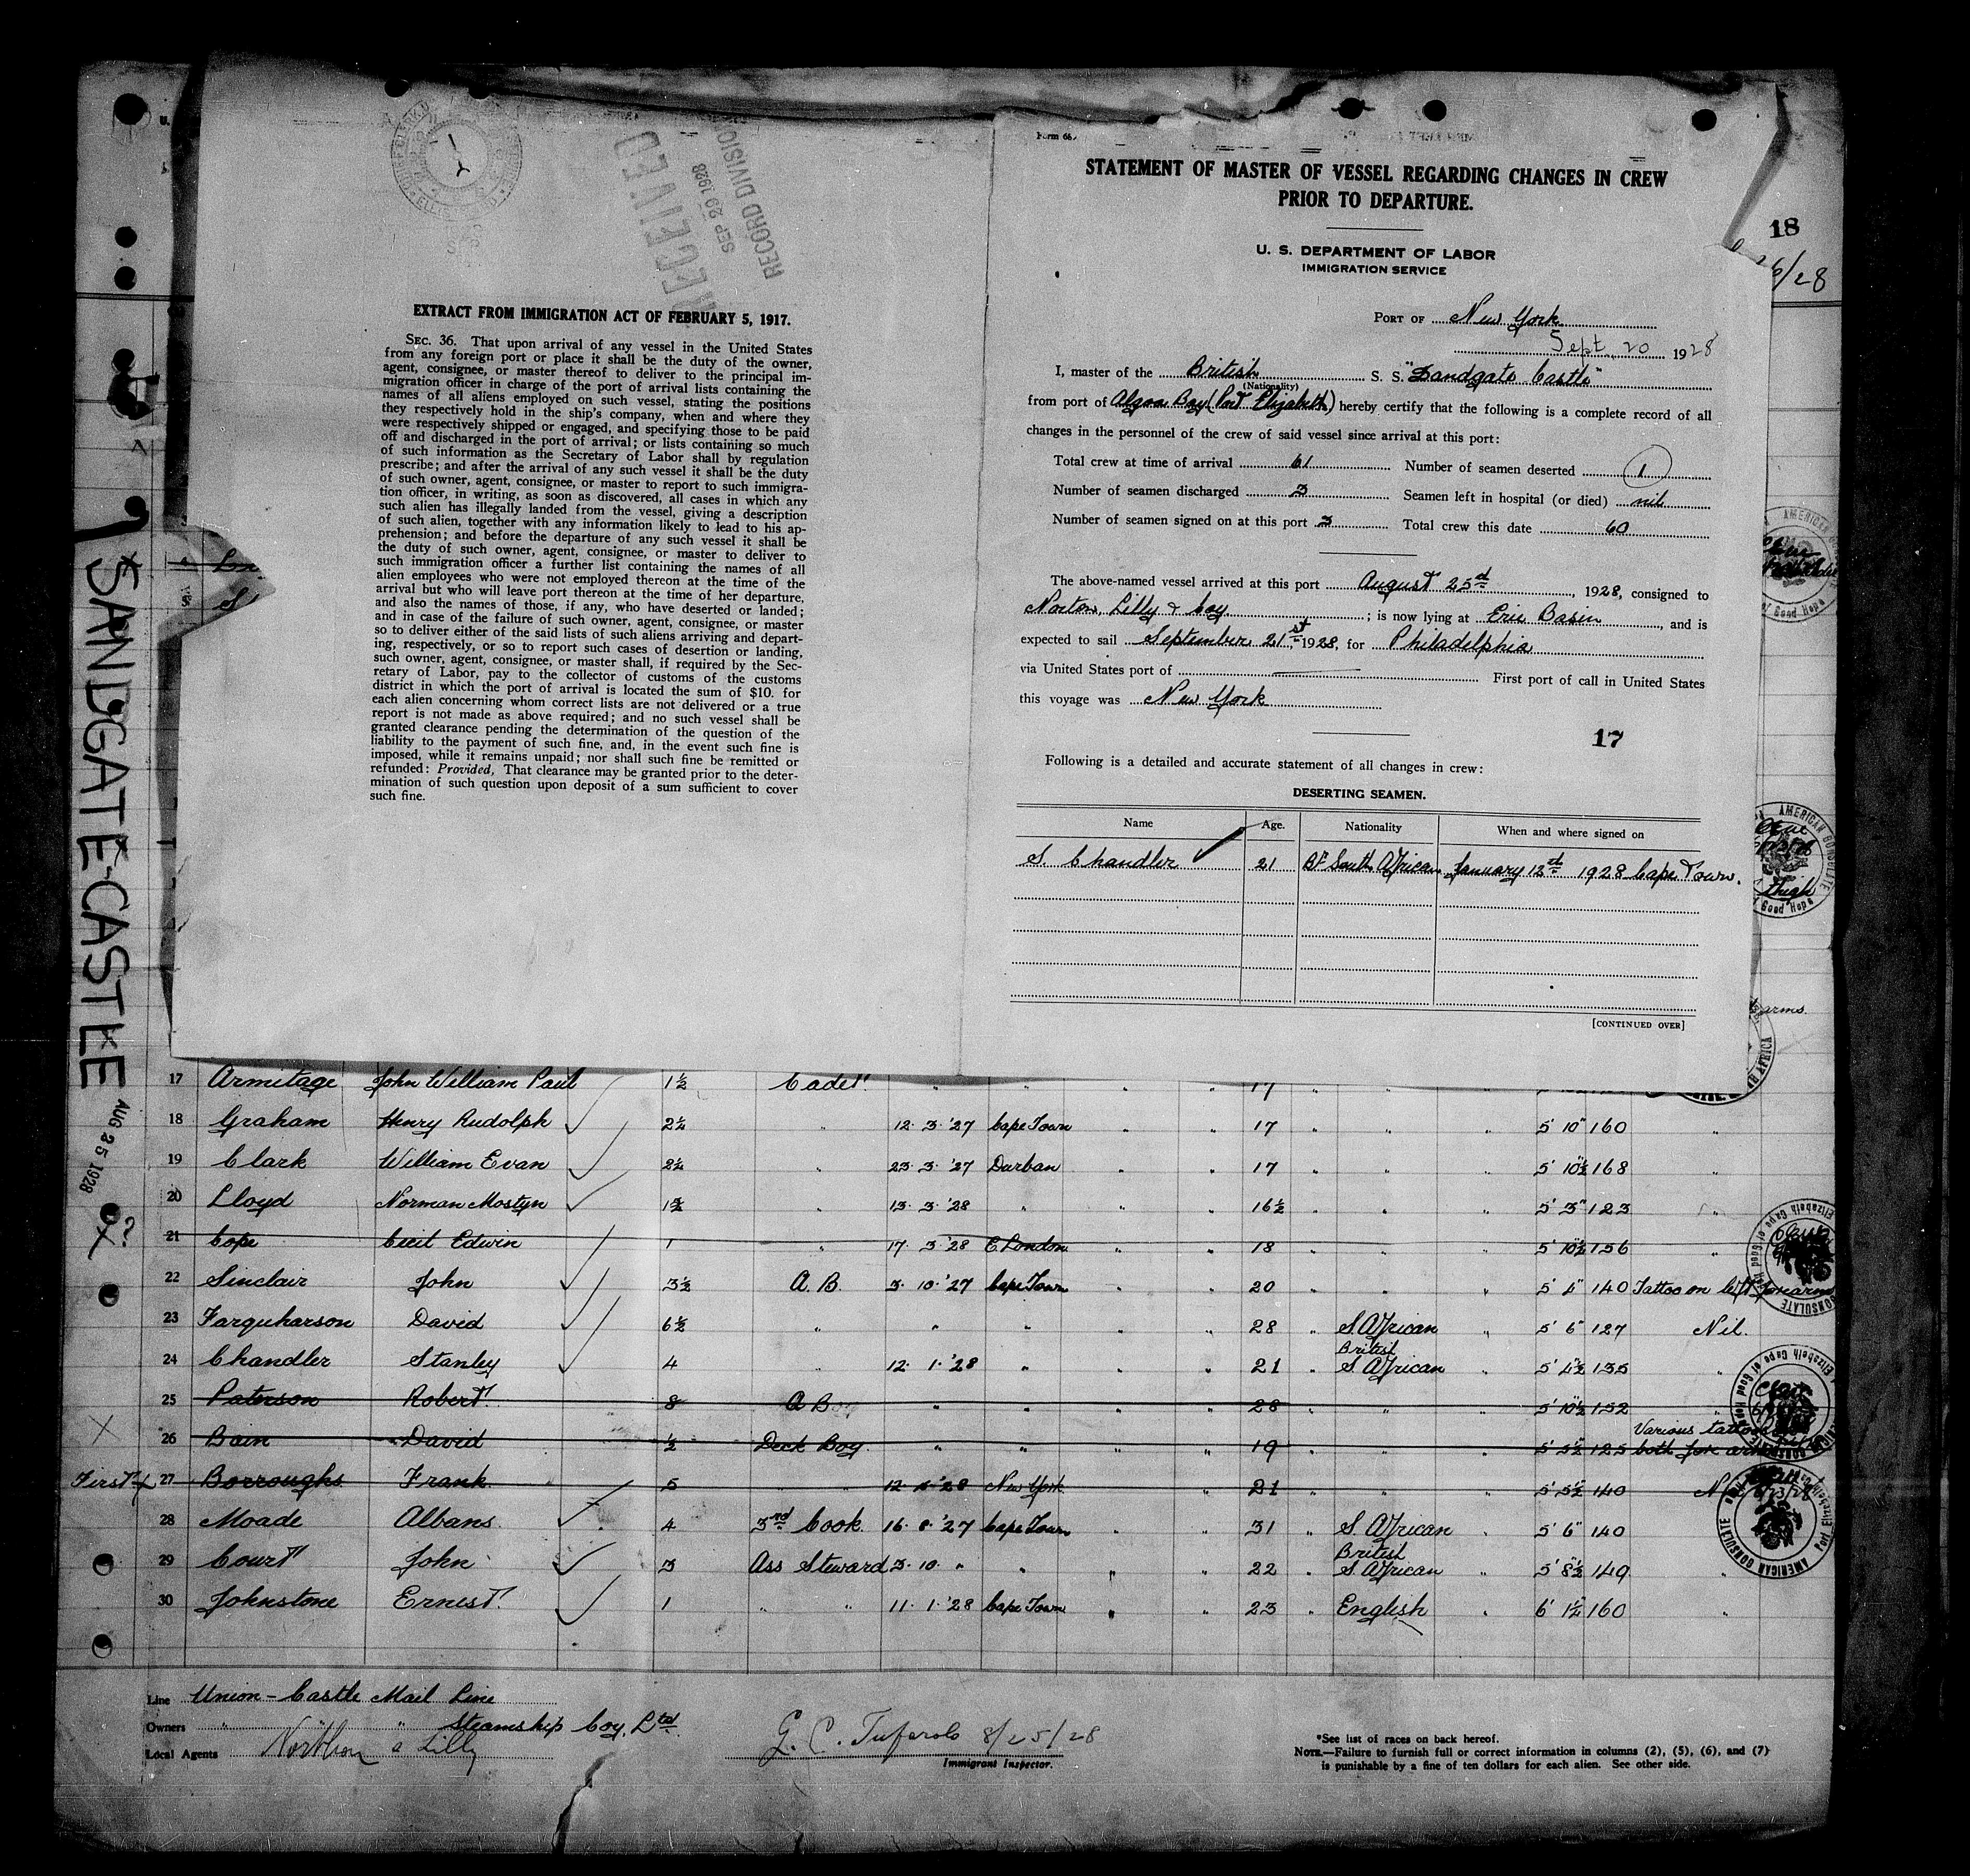 RECEIVED
SEP 29 1928
RECORD DIVISIO
EXTRACT FROM IMMIGRATION ACT OF FEBRUARY 5, 1917.
SEC. 36. That upon arrival of any vessel in the United States
from any foreign port or place it shall be the duty of the owner,
agent, consignee, or master thereof to deliver to the principal im-
migration officer in charge of the port of arrival lists containing the
names of all aliens employed on such vessel, stating the positions
they respectively hold in the ship's company, when and where they
were respectively shipped or engaged, and specifying those to be paid
off and discharged in the port of arrival; or lists containing so much
of such information as the Secretary of Labor shall by regulation
prescribe; and after the arrival of any such vessel it shall be the duty
of such owner, agent, consignee, or master to report to such immigra-
tion officer, in writing, as soon as discovered, all cases in which any
such alien has illegally landed from the vessel, giving a description
of such alien, together with any information likely to lead to his ap-
prehension; and before the departure of any such vessel it shall be
the duty of such owner, agent, consignee, or master to deliver to
such immigration officer a further list containing the names of all
alien employees who were not employed thereon at the time of the
arrival but who will leave port thereon at the time of her departure,
and also the names of those, if any, who have deserted or landed;
and in case of the failure of such owner, agent, consignee, or master
so to deliver either of the said lists of such aliens arriving and depart-
ing, respectively, or so to report such cases of desertion or landing,
such owner, agent, consignee, or master shall, if required by the Sec-
retary of Labor, pay to the collector of customs of the customs
district in which the port of arrival is located the sum of $10. for
each alien concerning whom correct lists are not delivered or a true
report is not made as above required; and no such vessel shall be
granted clearance pending the determination of the question of the
liability to the payment of such fine, and, in the event such fine is
imposed, while it remains unpaid; nor shall such fine be remitted or
refunded: Provided, That clearance may be granted prior to the deter-
mination of such question upon deposit of a sum sufficient to cover
such fine.
Form 66
STATEMENT OF MASTER OF VESSEL REGARDING CHANGES IN CREW
PRIOR TO DEPARTURE.
U. S. DEPARTMENT OF LABOR
IMMIGRATION SERVICE
18
6/28
PORT OF New York
Sept. 20 1928
I, master of the British S. S. "Sandgate Castle"
(Nationality)
from port of Algoa Bay (Port Elizabeth) hereby certify that the following is a complete record of all
changes in the personnel of the crew of said vessel since arrival at this port:
Total crew at time of arrival 61 Number of seamen deserted 1
Number of seamen discharged 3 Seamen left in hospital (or died) nil
Number of seamen signed on at this port 3 Total crew this date 60
The above-named vessel arrived at this port August 25th, 1928, consigned to
Norton, Lilly & Coy ; is now lying at Erie Basin, and is
expected to sail September 21st, 1928, for Philadelphia
via United States port of First port of call in United States
this voyage was New York
17
Following is a detailed and accurate statement of all changes in crew:
DESERTING SEAMEN.
Name Age. Nationality When and where signed on
S. Chandler 21 Br South African January 12th 1928 Cape Town.
[CONTINUED OVER]
SANDGATE-CASTLE AUG 25 1928
17 Armitage John William Paul 1½ Cadet " " " " 17
18 Graham Henry Rudolph 2¼ " 12. 3. '27 Cape Town " " 17 " " " 5' 10" 160 "
19 Clark William Evan 2¼ " 23. 3. '27 Durban " " 17 " " " 5' 10½ 168
20 Lloyd Norman Mostyn 1¾ " 13. 3. '28 " " " 16½ " " " 5' 3" 123 "
21 Cope Cecil Edwin 1 " 17. 3 '28 E. London " " 18 " " " 5' 10½ 156 "
22 Sinclair John 3½ A. B. 3. 10. '27 Cape Town " " 20 " " " 5' 4" 140 Tattoo on left forearm
23 Farquharson David 6½ " " " " " 28 " S. African " 5' 6" 127 Nil.
24 Chandler Stanley 4 " 12. 1. '28 " " " 21 " British S. African " 5' 4½ 135 "
25 Paterson Robert 8 A B " " " " 28 " " " 5' 10½ 152 "
26 Bain David ½ Deck Boy " " " " 19 " " " 5' 5½ 125 Various tattoo both fore arms
First x 27 Borroughs Frank 5 12. '28 New York " 21 " " 5' 5½ 140 Nil
28 Moade Albans 4 3rd Cook 16. 8. '27 Cape Town " " 31 " S. African " 5' 6" 140
29 Court John 3 Ass Steward 3. 10. " " " " 22 " British S. African " 5' 8½ 149 "
30 Johnstone Ernest 1 " " 11. 1. '28 Cape Town " " 23 " English " 6' 1½ 160 "
Line Union-Castle Mail Line
Owners " " Steamship Coy. Ltd.
Local Agents Northon & Lilly
G. C. Tuferolo 8/25/28
Immigrant Inspector.
*See list of races on back hereof.
NOTE.—Failure to furnish full or correct information in columns (2), (5), (6), and (7)
is punishable by a fine of ten dollars for each alien. See other side.